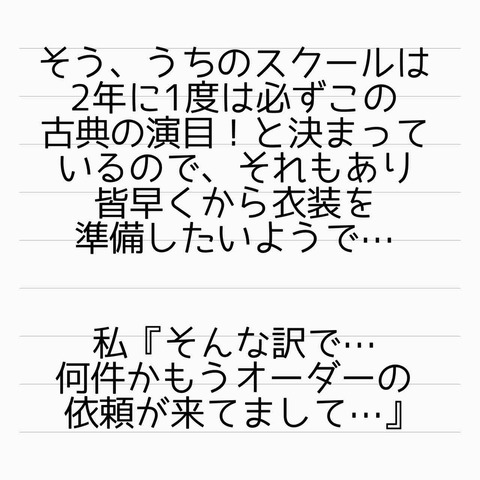 そう、うちのスクールは
2年に1度は必ずこの
古典の演目！と決まって
いるので、それもあり
皆早くから衣装を
準備したいようで…
私『そんな訳で…
何件かもうオーダーの
依頼が来てまして…』